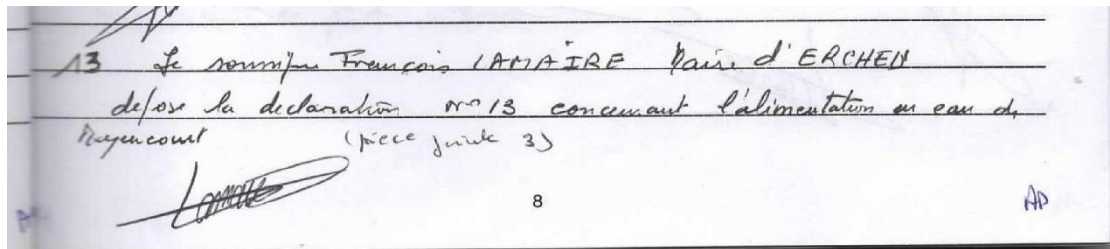 13 Je soussigné François LAMAIRE Maire d'ERCHEU
depose la declaration n° 13 concernant l'alimentation en eau de
Moyencourt (pièce jointe 3)
8 AD